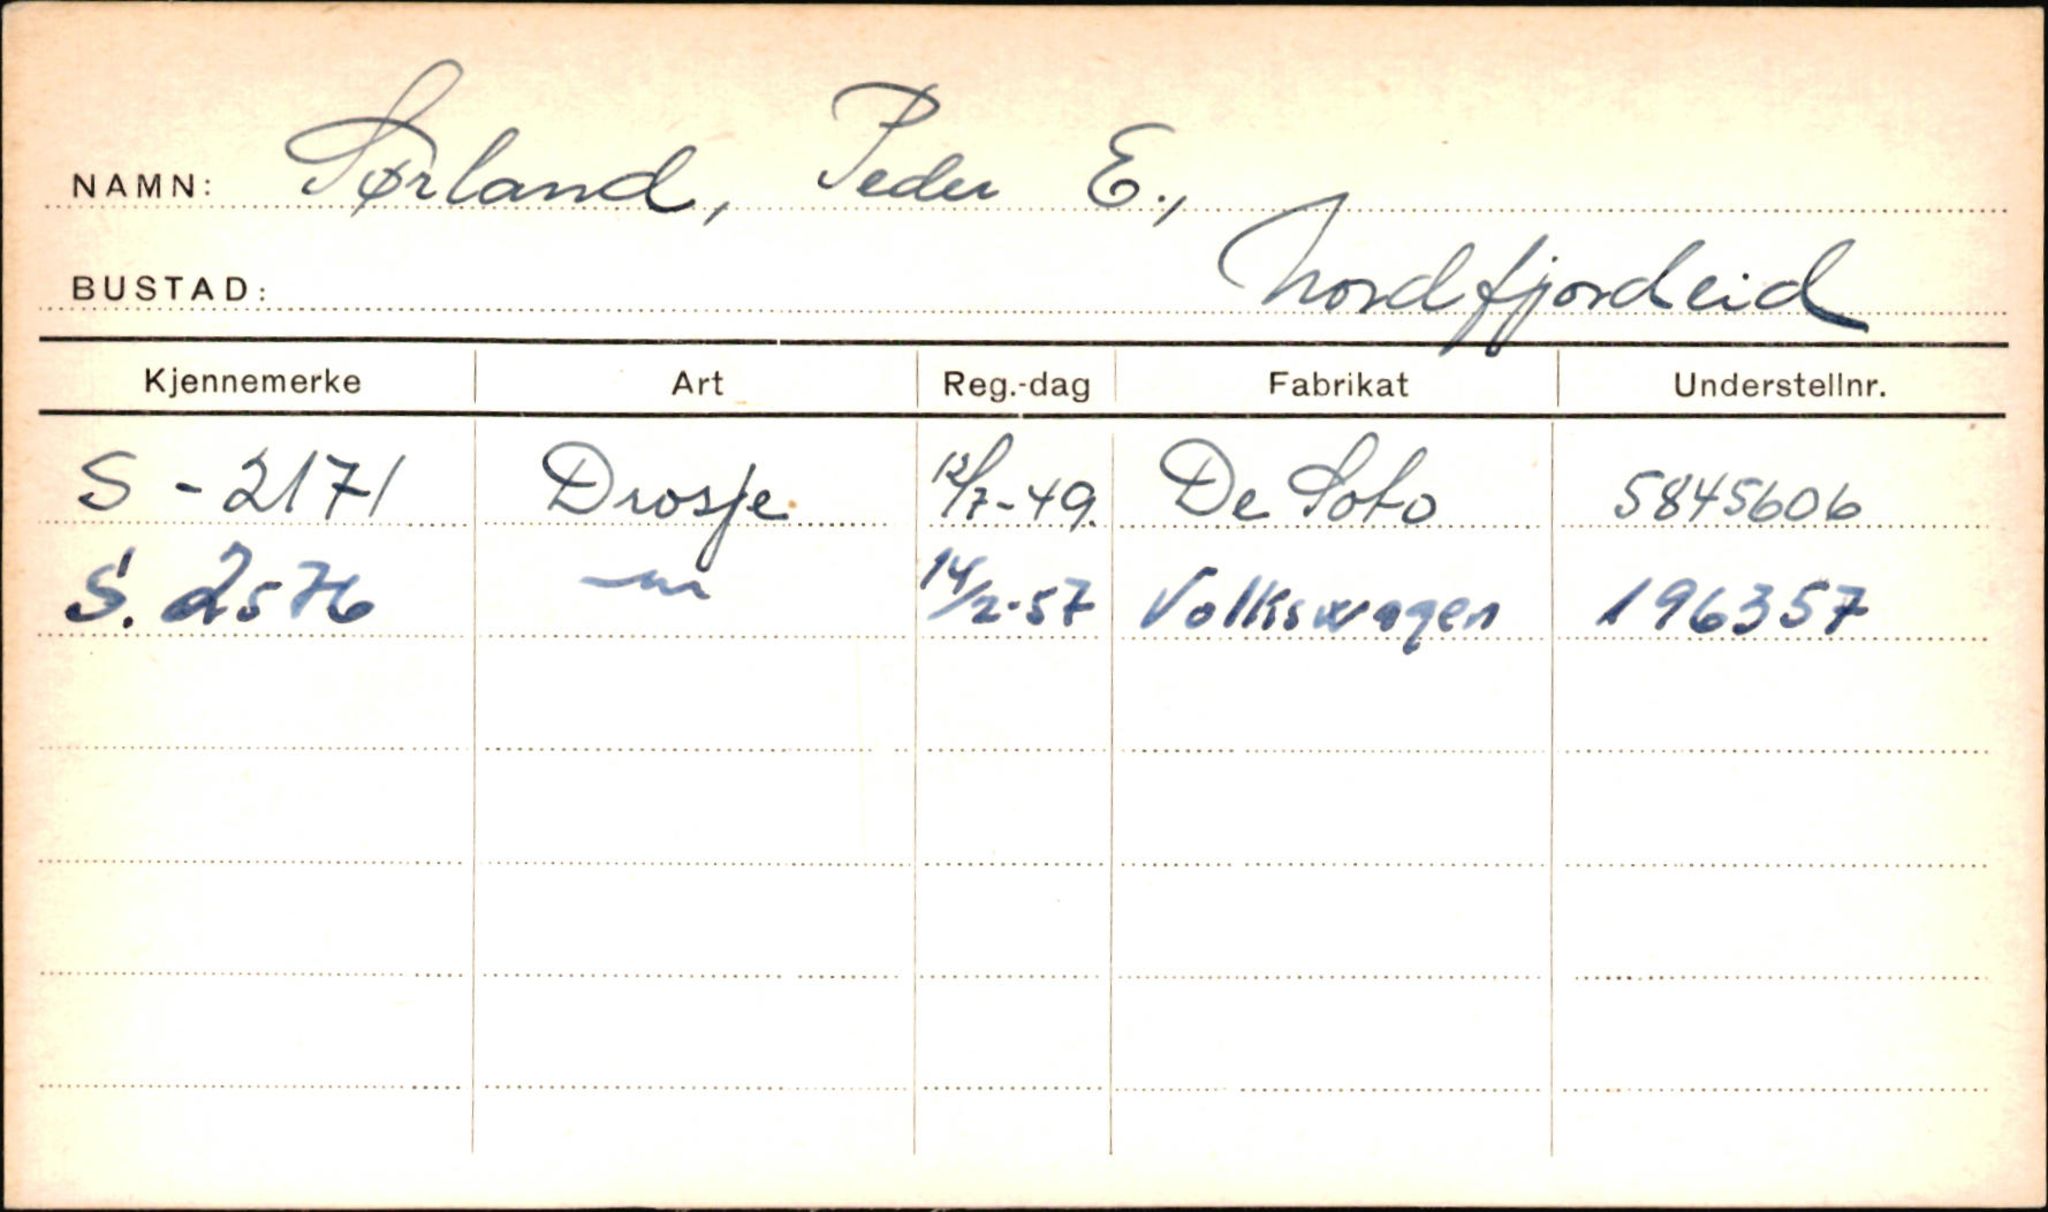 NAMN: Sørland, Peder E.,
BUSTAD: Nordfjordeid
Kjennemerke Art Reg.-dag Fabrikat Understellnr.
S - 2171 Drosje 12/7-49. De Soto 5845606
S. 2576 14/2-57 Volkswagen 196357